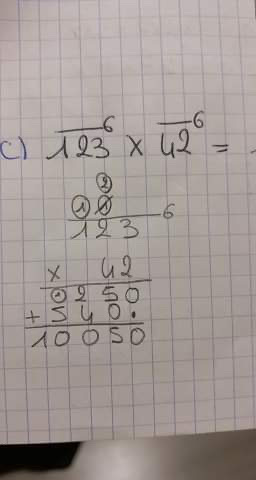 c) 123⁶ x 42⁶ =
② 
① 0
123 6
x 42
0250
+ 540.
10050